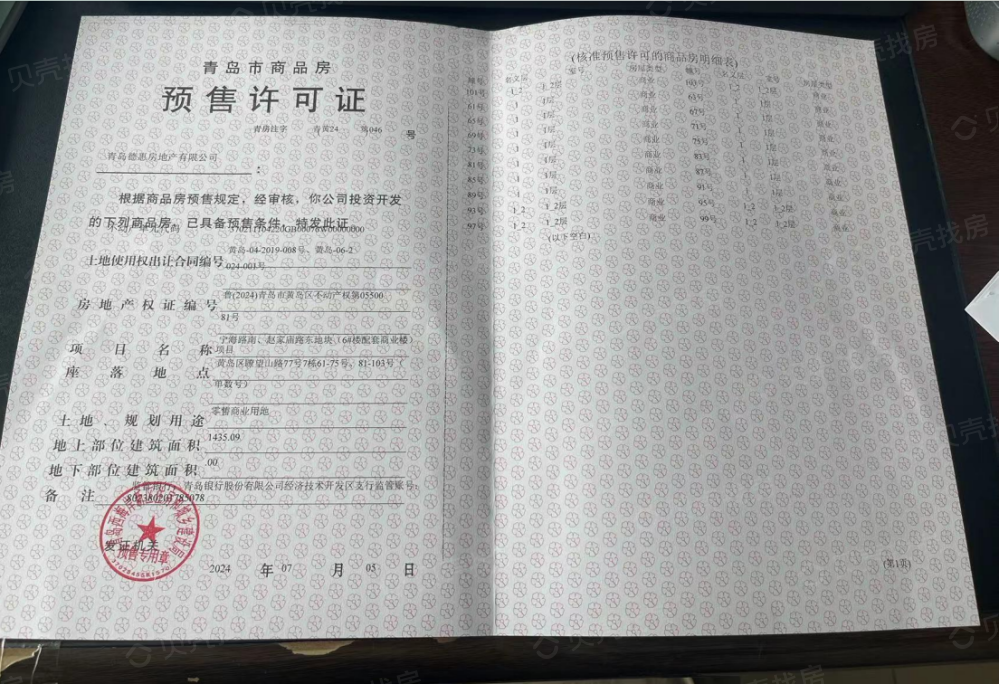 青岛市商品房
预售许可证
青房注字 青黄24 第046 号
青岛德惠房地产有限公司 :
根据商品房预售规定，经审核，你公司投资开发
的下列商品房，已具备预售条件，特发此证
不动产单元代码
黄岛-04-2019-008号、黄岛-06-2
土地使用权出让合同编号 024-001号
鲁(2024)青岛市黄岛区不动产权第05500
房地产权证编号 81号
宁海路南、赵家庙路东地块（6#楼配套商业楼）
项目名称 项目
座落地点 黄岛区瞭望山路77号7栋61-75号，81-103号（
单数号）
土地、规划用途 零售商业用地
地上部位建筑面积 1435.09
地下部位建筑面积 .00
青岛银行股份有限公司经济技术开发区支行监管账号:
备注 802380201785078
发证机关
预售专用章
2024 年 07 月 05 日
(核准预售许可的商品房明细表)
编号 名义层 室号 房屋类型 编号 名义层 室号 房屋类型
101号 1_2 1_2层 商业 103号 1_2 1_2层 商业
61号 1 1层 商业 63号 1 1层 商业
65号 1 1层 商业 67号 1 1层 商业
69号 1 1层 商业 71号 1 1层 商业
73号 1 1层 商业 75号 1 1层 商业
81号 1 1层 商业 83号 1 1层 商业
85号 1 1层 商业 87号 1 1层 商业
89号 1 1层 商业 91号 1 1层 商业
93号 1_2 1_2层 商业 95号 1_2 1_2层 商业
97号 1_2 1_2层 商业 99号 1_2 1_2层 商业
(以下空白)
(第1页)
贝壳找房